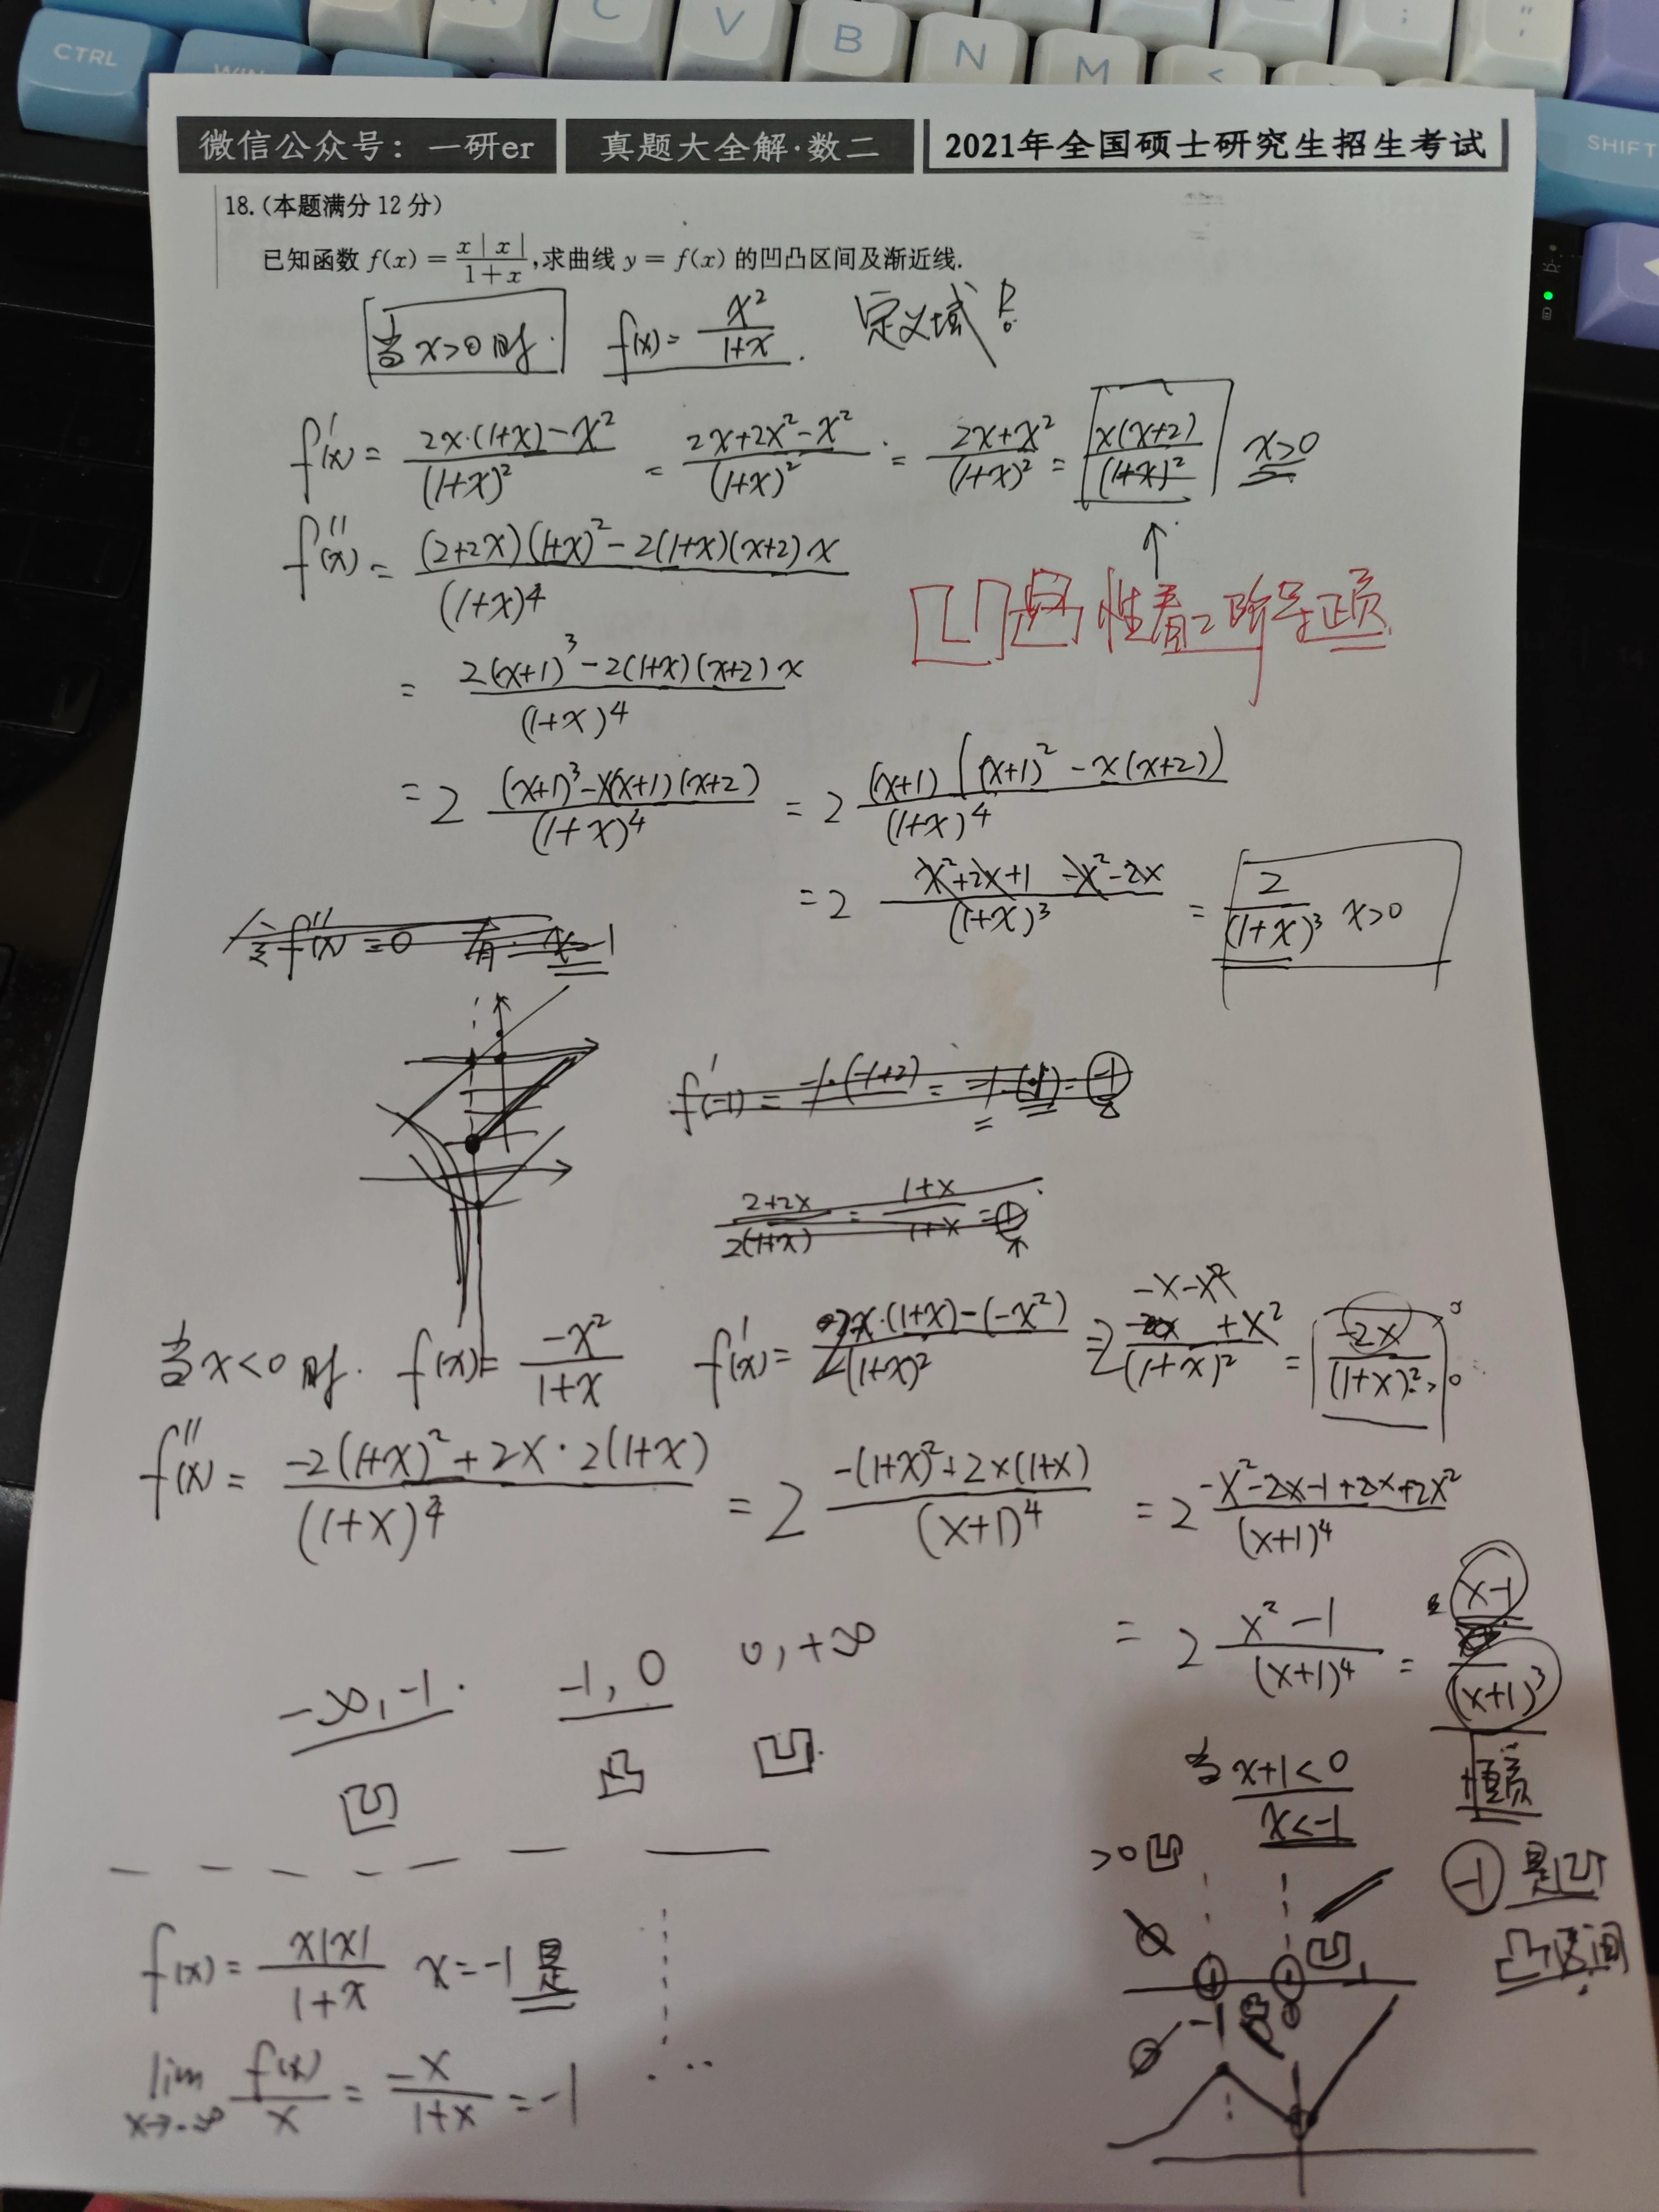 CTRL
WIN
C
V
B
N
M
<
;
"
SHIFT
微信公众号：一研er 真题大全解·数二 2021年全国硕士研究生招生考试
18.(本题满分 12 分)
已知函数 f(x) = x|x|/(1+x),求曲线 y = f(x) 的凹凸区间及渐近线.
当 x>0 时. f(x) = x²/(1+x) . 定义域
f'(x) = (2x·(1+x)-x²)/(1+x)² = (2x+2x²-x²)/(1+x)² = (2x+x²)/(1+x)² = x(x+2)/(1+x)² x>0
f''(x) = ((2+2x)(1+x)²-2(1+x)(x+2)x)/(1+x)⁴
凹凸性看2阶导正负
= (2(x+1)³-2(1+x)(x+2)x)/(1+x)⁴
= 2 ((x+1)³-x(x+1)(x+2))/(1+x)⁴ = 2 (x+1)((x+1)²-x(x+2))/(1+x)⁴
= 2 (x²+2x+1-x²-2x)/(1+x)³ = 2/(1+x)³ x>0
令f''(x)=0 有 x=-1
f'(-1) = -1·(-1+2) =
(2+2x)/(2(1+x)) = (1+x)/(1+x) =
当x<0时. f(x) = -x²/(1+x) f'(x) = (-2x·(1+x)-(-x²))/(1+x)² =
-2x/(1+x)²
f''(x) = (-2(1+x)²+2x·2(1+x))/(1+x)⁴ = 2 (-(1+x)²+2x(1+x))/(x+1)⁴ = 2 (-x²-2x-1+2x+2x²)/(x+1)⁴
= 2 (x²-1)/(x+1)⁴ = (x-1)/(x+1)³
恒负
-∞,-1. -1,0 0,+∞
凹 凸 凹
当 x+1<0
x<-1
>0 凹
-1 是凹
凸区间
凹
-1
凸
f(x) = x|x|/(1+x) x=-1 是
lim x→-∞ f(x)/x = -x/(1+x) = -1